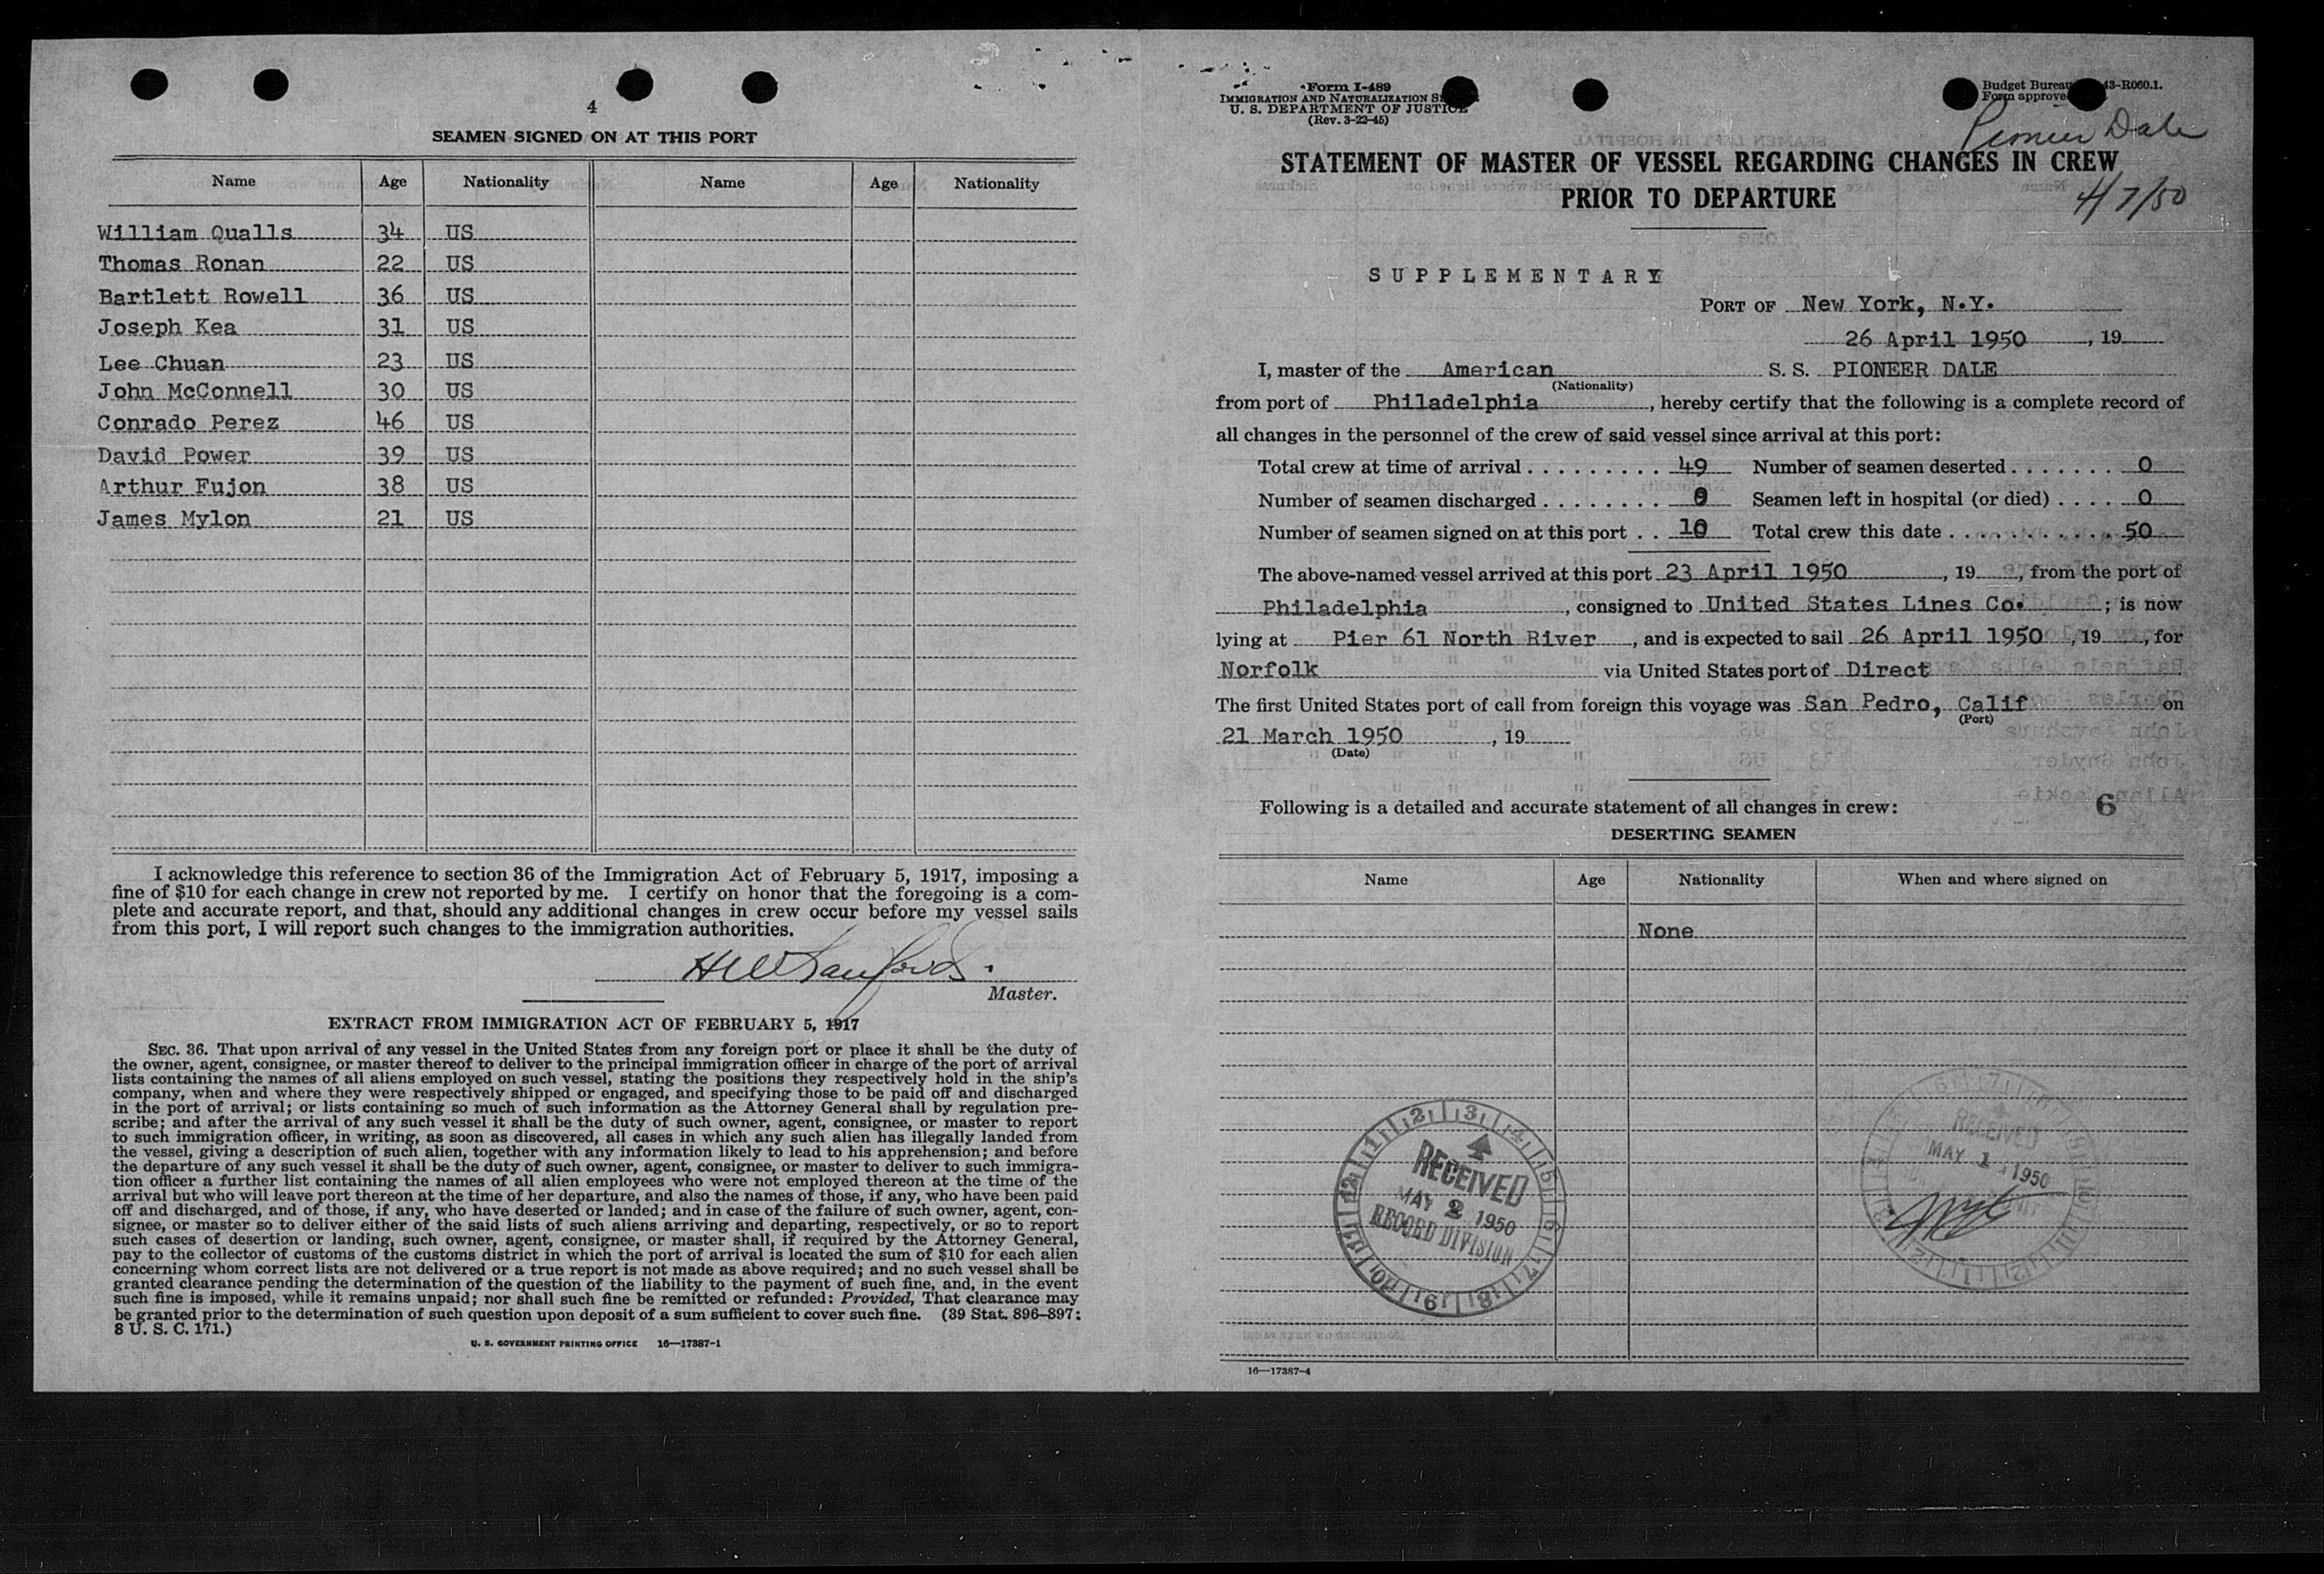 4
SEAMEN SIGNED ON AT THIS PORT
Name Age Nationality Name Age Nationality
William Qualls 34 US
Thomas Ronan 22 US
Bartlett Rowell 36 US
Joseph Kea 31 US
Lee Chuan 23 US
John McConnell 30 US
Conrado Perez 46 US
David Power 39 US
Arthur Fujon 38 US
James Mylon 21 US
I acknowledge this reference to section 36 of the Immigration Act of February 5, 1917, imposing a
fine of $10 for each change in crew not reported by me. I certify on honor that the foregoing is a com-
plete and accurate report, and that, should any additional changes in crew occur before my vessel sails
from this port, I will report such changes to the immigration authorities.
Master.
EXTRACT FROM IMMIGRATION ACT OF FEBRUARY 5, 1917
SEC. 36. That upon arrival of any vessel in the United States from any foreign port or place it shall be the duty of
the owner, agent, consignee, or master thereof to deliver to the principal immigration officer in charge of the port of arrival
lists containing the names of all aliens employed on such vessel, stating the positions they respectively hold in the ship's
company, when and where they were respectively shipped or engaged, and specifying those to be paid off and discharged
in the port of arrival; or lists containing so much of such information as the Attorney General shall by regulation pre-
scribe; and after the arrival of any such vessel it shall be the duty of such owner, agent, consignee, or master to report
to such immigration officer, in writing, as soon as discovered, all cases in which any such alien has illegally landed from
the vessel, giving a description of such alien, together with any information likely to lead to his apprehension; and before
the departure of any such vessel it shall be the duty of such owner, agent, consignee, or master to deliver to such immigra-
tion officer a further list containing the names of all alien employees who were not employed thereon at the time of the
arrival but who will leave port thereon at the time of her departure, and also the names of those, if any, who have been paid
off and discharged, and of those, if any, who have deserted or landed; and in case of the failure of such owner, agent, con-
signee, or master so to deliver either of the said lists of such aliens arriving and departing, respectively, or so to report
such cases of desertion or landing, such owner, agent, consignee, or master shall, if required by the Attorney General,
pay to the collector of customs of the customs district in which the port of arrival is located the sum of $10 for each alien
concerning whom correct lists are not delivered or a true report is not made as above required; and no such vessel shall be
granted clearance pending the determination of the question of the liability to the payment of such fine, and, in the event
such fine is imposed, while it remains unpaid; nor shall such fine be remitted or refunded: Provided, That clearance may
be granted prior to the determination of such question upon deposit of a sum sufficient to cover such fine. (39 Stat. 896–897;
8 U. S. C. 171.)
U. S. GOVERNMENT PRINTING OFFICE 16—17387-1
Form I-489
IMMIGRATION AND NATURALIZATION
U. S. DEPARTMENT OF JUSTICE
(Rev. 3-22-45)
Budget Bureau 43-R060.1.
Form approve
Pioneer Dale
4/7/50
STATEMENT OF MASTER OF VESSEL REGARDING CHANGES IN CREW
PRIOR TO DEPARTURE
SUPPLEMENTARY
PORT OF New York, N.Y.
26 April 1950, 19
I, master of the American S. S. PIONEER DALE
(Nationality)
from port of Philadelphia, hereby certify that the following is a complete record of
all changes in the personnel of the crew of said vessel since arrival at this port:
Total crew at time of arrival 49 Number of seamen deserted 0
Number of seamen discharged Seamen left in hospital (or died) 0
Number of seamen signed on at this port 10 Total crew this date 50
The above-named vessel arrived at this port 23 April 1950, 19, from the port of
Philadelphia, consigned to United States Lines Co. ; is now
lying at Pier 61 North River, and is expected to sail 26 April 1950, 19, for
Norfolk via United States port of Direct
The first United States port of call from foreign this voyage was San Pedro, Calif on
(Port)
21 March 1950, 19
(Date)
Following is a detailed and accurate statement of all changes in crew: 6
DESERTING SEAMEN
Name Age Nationality When and where signed on
None
RECEIVED
MAY 2 1950
RECORD DIVISION
RECEIVED
MAY 1 1950
16—17387-4